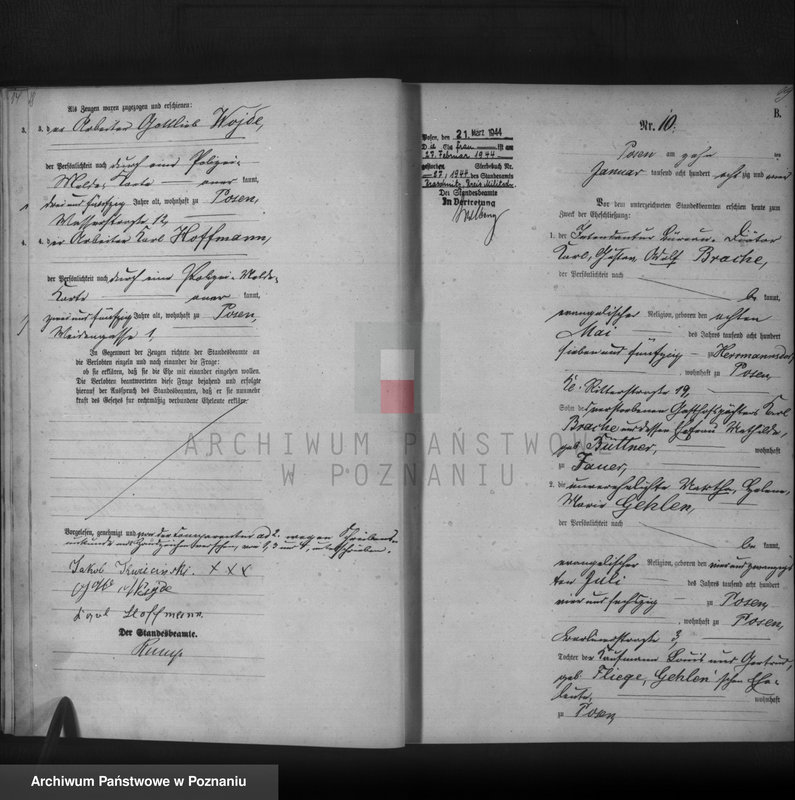 14
Als Zeugen waren zugezogen und erschienen:
3. der Arbeiter Gottlieb Wojde,
der Persönlichkeit nach durch eine Polizei-
Melde-Karte kannt,
drei und fünfzig Jahre alt, wohnhaft zu Posen,
Wasserstraße 12,
4. der Arbeiter Karl Hoffmann,
der Persönlichkeit nach durch eine Polizei-Melde-
Karte kannt,
zwei und fünfzig Jahre alt, wohnhaft zu Posen,
Weidengasse 1.
In Gegenwart der Zeugen richtete der Standesbeamte an
die Verlobten einzeln und nach einander die Frage:
ob sie erklären, daß sie die Ehe mit einander eingehen wollen.
Die Verlobten beantworteten diese Frage bejahend und erfolgte
hierauf der Ausspruch des Standesbeamten, daß er sie nunmehr
kraft des Gesetzes für rechtmäßig verbundene Eheleute erkläre.
Vorgelesen, genehmigt und von der Comparentin ad 2. wegen Schreibens-
unkunde mit Handzeichen versehen, von 1, 3 und 4, unterschrieben.
Jakob +++
Wojde
Karl Hoffmann
Der Standesbeamte.
B.
Nr. 10.
Posen, den 21. März 1944
D ie Ehefrau ist am
27. Februar 1944
gestorben Sterbebuch Nr.
27/1944 des Standesamts
Kreis Militsch
Der Standesbeamte
In Vertretung
Posen am zehnten
Januar tausend acht hundert acht zig und neun
Vor dem unterzeichneten Standesbeamten erschienen heute zum
Zweck der Eheschließung:
1. der Intendantur Büreau-Diätar
Karl, Gustav, Adolf Brache,
der Persönlichkeit nach
be kannt,
evangelischer Religion, geboren den achten
Mai des Jahres tausend acht hundert
sieben und fünfzig zu Herrmannsdorf
, wohnhaft zu Posen,
Kl. Ritterstraße 19,
Sohn des verstorbenen Gasthofspächters Karl
Brache und dessen Ehefrau Mathilde,
geb. Büttner, wohnhaft
zu Jauer,
2. die unverehelichte Martha, Helene,
Marie Gehlen,
der Persönlichkeit nach
be kannt,
evangelischer Religion, geboren den vier und zwanzigs
ten Juli des Jahres tausend acht hundert
vier und sechszig zu Posen
, wohnhaft zu Posen,
Berlinerstraße 3,
Tochter der Kaufmann Louis und Gertrud,
geb. Fliege, Gehlen'schen Ehe-
leute, wohnhaft
zu Posen
ARCHIWUM PAŃSTWOWE
W POZNANIU
Archiwum Państwowe w Poznaniu